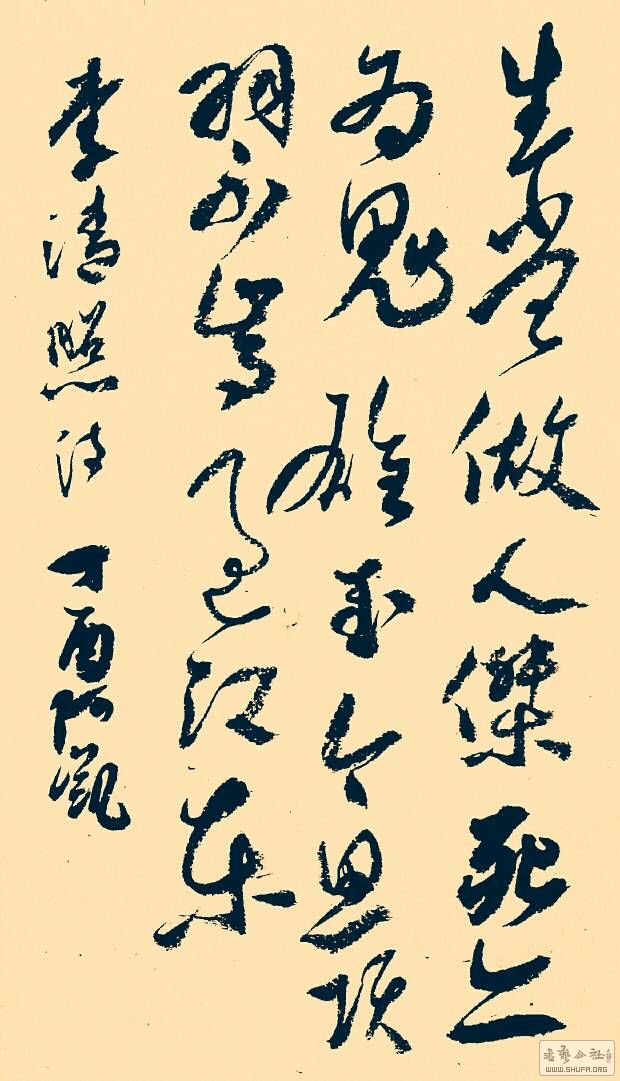 生當做人傑死亦
為鬼雄至今思項
羽不肯過江東
李清照詩 丁酉阿凱
書藝公社
WWW.SHUFA.ORG